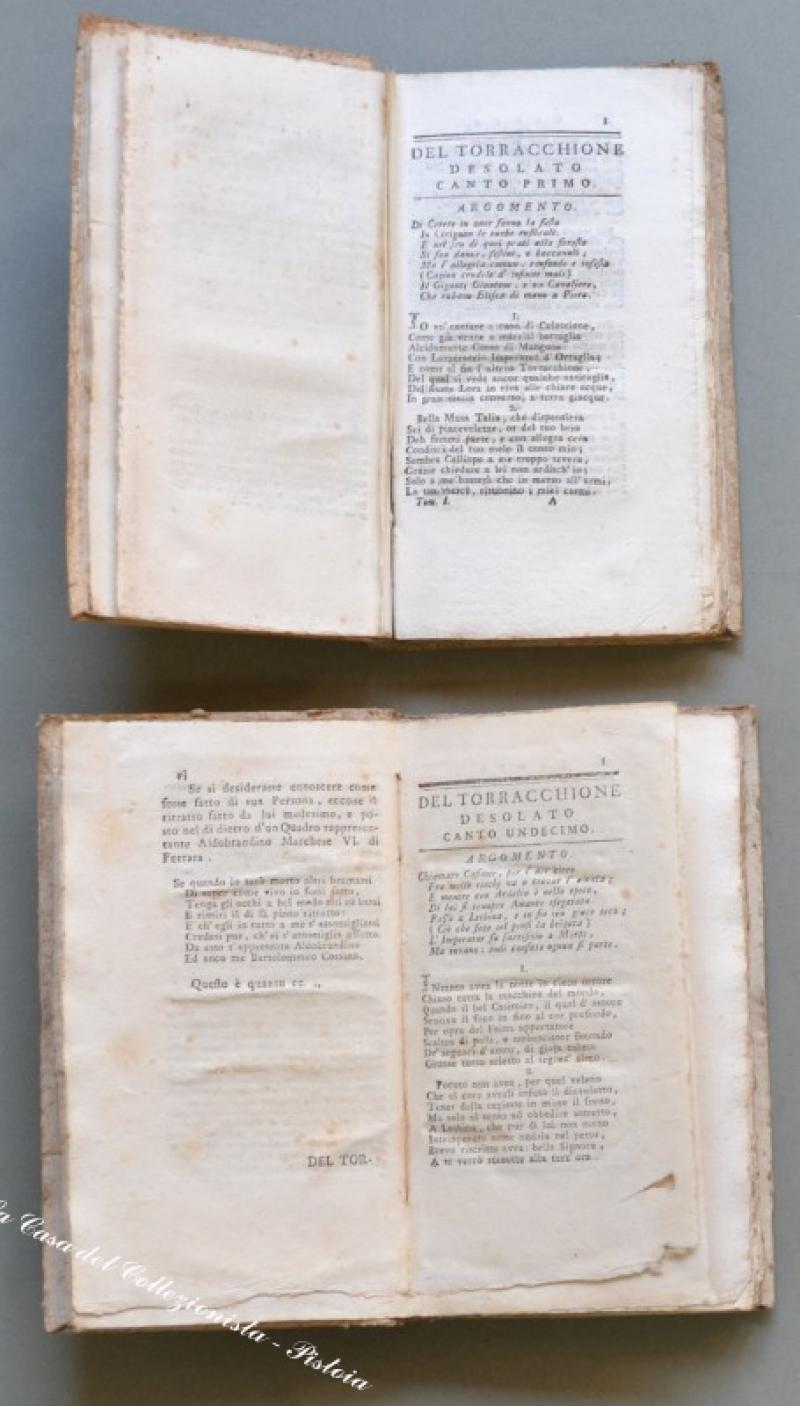 1
DEL TORRACCHIONE
DESOLATO
CANTO PRIMO.
ARGOMENTO.
Di Cerere in onor fanno la festa
In Cirignan le turbe rusticali.
E nel fin di quei prati alla foresta
Si fan danze, festini, e baccanali;
Ma l'allegria comun, confonde e infesta
(Cagion crudele d'infiniti mali)
Il Gigante Giuntone, e un Cavaliero,
Che rubano Elisea di mano a Piero.
1.
IO vo' cantare a suon di Calascione,
Come già venne a marzial battaglia
Alcidamante Conte di Mangone
Con Lazzeraccio Imperator d'Ortaglia;
E come al fin l'altero Torracchione,
Del qual si vede ancor qualche anticaglia,
Del fiume Lora in riva alle chiare acque,
In gran macia converso, a terra giacque.
2.
Bella Musa Talia, che dispensiera
Sei di piacevolezze, or del tuo brio
Deh fammi parte, e con allegra cera
Condisci del tuo melo il canto mio;
Sembra Calliope a me troppo severa,
Grazie chiedere a lei non ardisch'io;
Solo a me basterà che in mezzo all'armi,
La tua mercè, risuonino i miei carmi.
Tom. I. A
vi
Se si desiderasse conoscere come
fosse fatto di sua Persona, eccose il
ritratto fatto da lui medesimo, e po-
sto nel di dietro d'un Quadro rappresen-
tante Aldobrandino Marchese VI. di
Ferrara.
Se quando io sarò morto altri bramassi
Di saper come vivo io fussi fatto,
Tenga gli occhi a bel modo alti nè bassi
E rimiri il di là pinto ritratto:
E ch'egli in tutto a me s'assomigliassi
Credasi pur, ch'ei s'assomiglia affatto.
Da esso s'appresenta Aldobrandino
Ed anco me Bartolommeo Corsino.
Questo è quanto ec. ,,
DEL TOR-
1
DEL TORRACCHIONE
DESOLATO
CANTO UNDECIMO.
ARGOMENTO.
Chiamato Casimir, per l'aer cieco
Fra mille rischj va a trovar l'amata;
E mentre con Ardelia è nello speco,
Di lui si scuopre Amante sfegatata
Passa a Lesbina, e in fin con giace seco;
(Ciò che fece col pensi la brigata)
L'Imperator fa sacrifizio a Marte,
Ma invano: onde confuso ognun si parte.
1.
INtanto avea la notte in cieco orrore
Chiuso tutta la macchina del mondo,
Quando il bel Casimiro, il qual d'amore
Sentiva il foco in fino al cor profondo,
Per opra del Fulena apportatore
Scaltro di polli, e ambasciator facondo
De' segreti d'amor, di gioia colmo
Grasse tutto soletto al segnat' olmo.
2.
Potuto non avea, per quel veleno
Che al core aveali infuso il diavoletto,
Tener della ragione in mano il freno,
Ma solo al senso ad obbedire astretto,
A Lesbina, che pur di lui non meno
Intemperato ardor nudria nel petto,
Breve riscritto avea: bella Signora,
A te verrò stanotte alla terz'ora.
la Casa del Collezionista - Pistoia